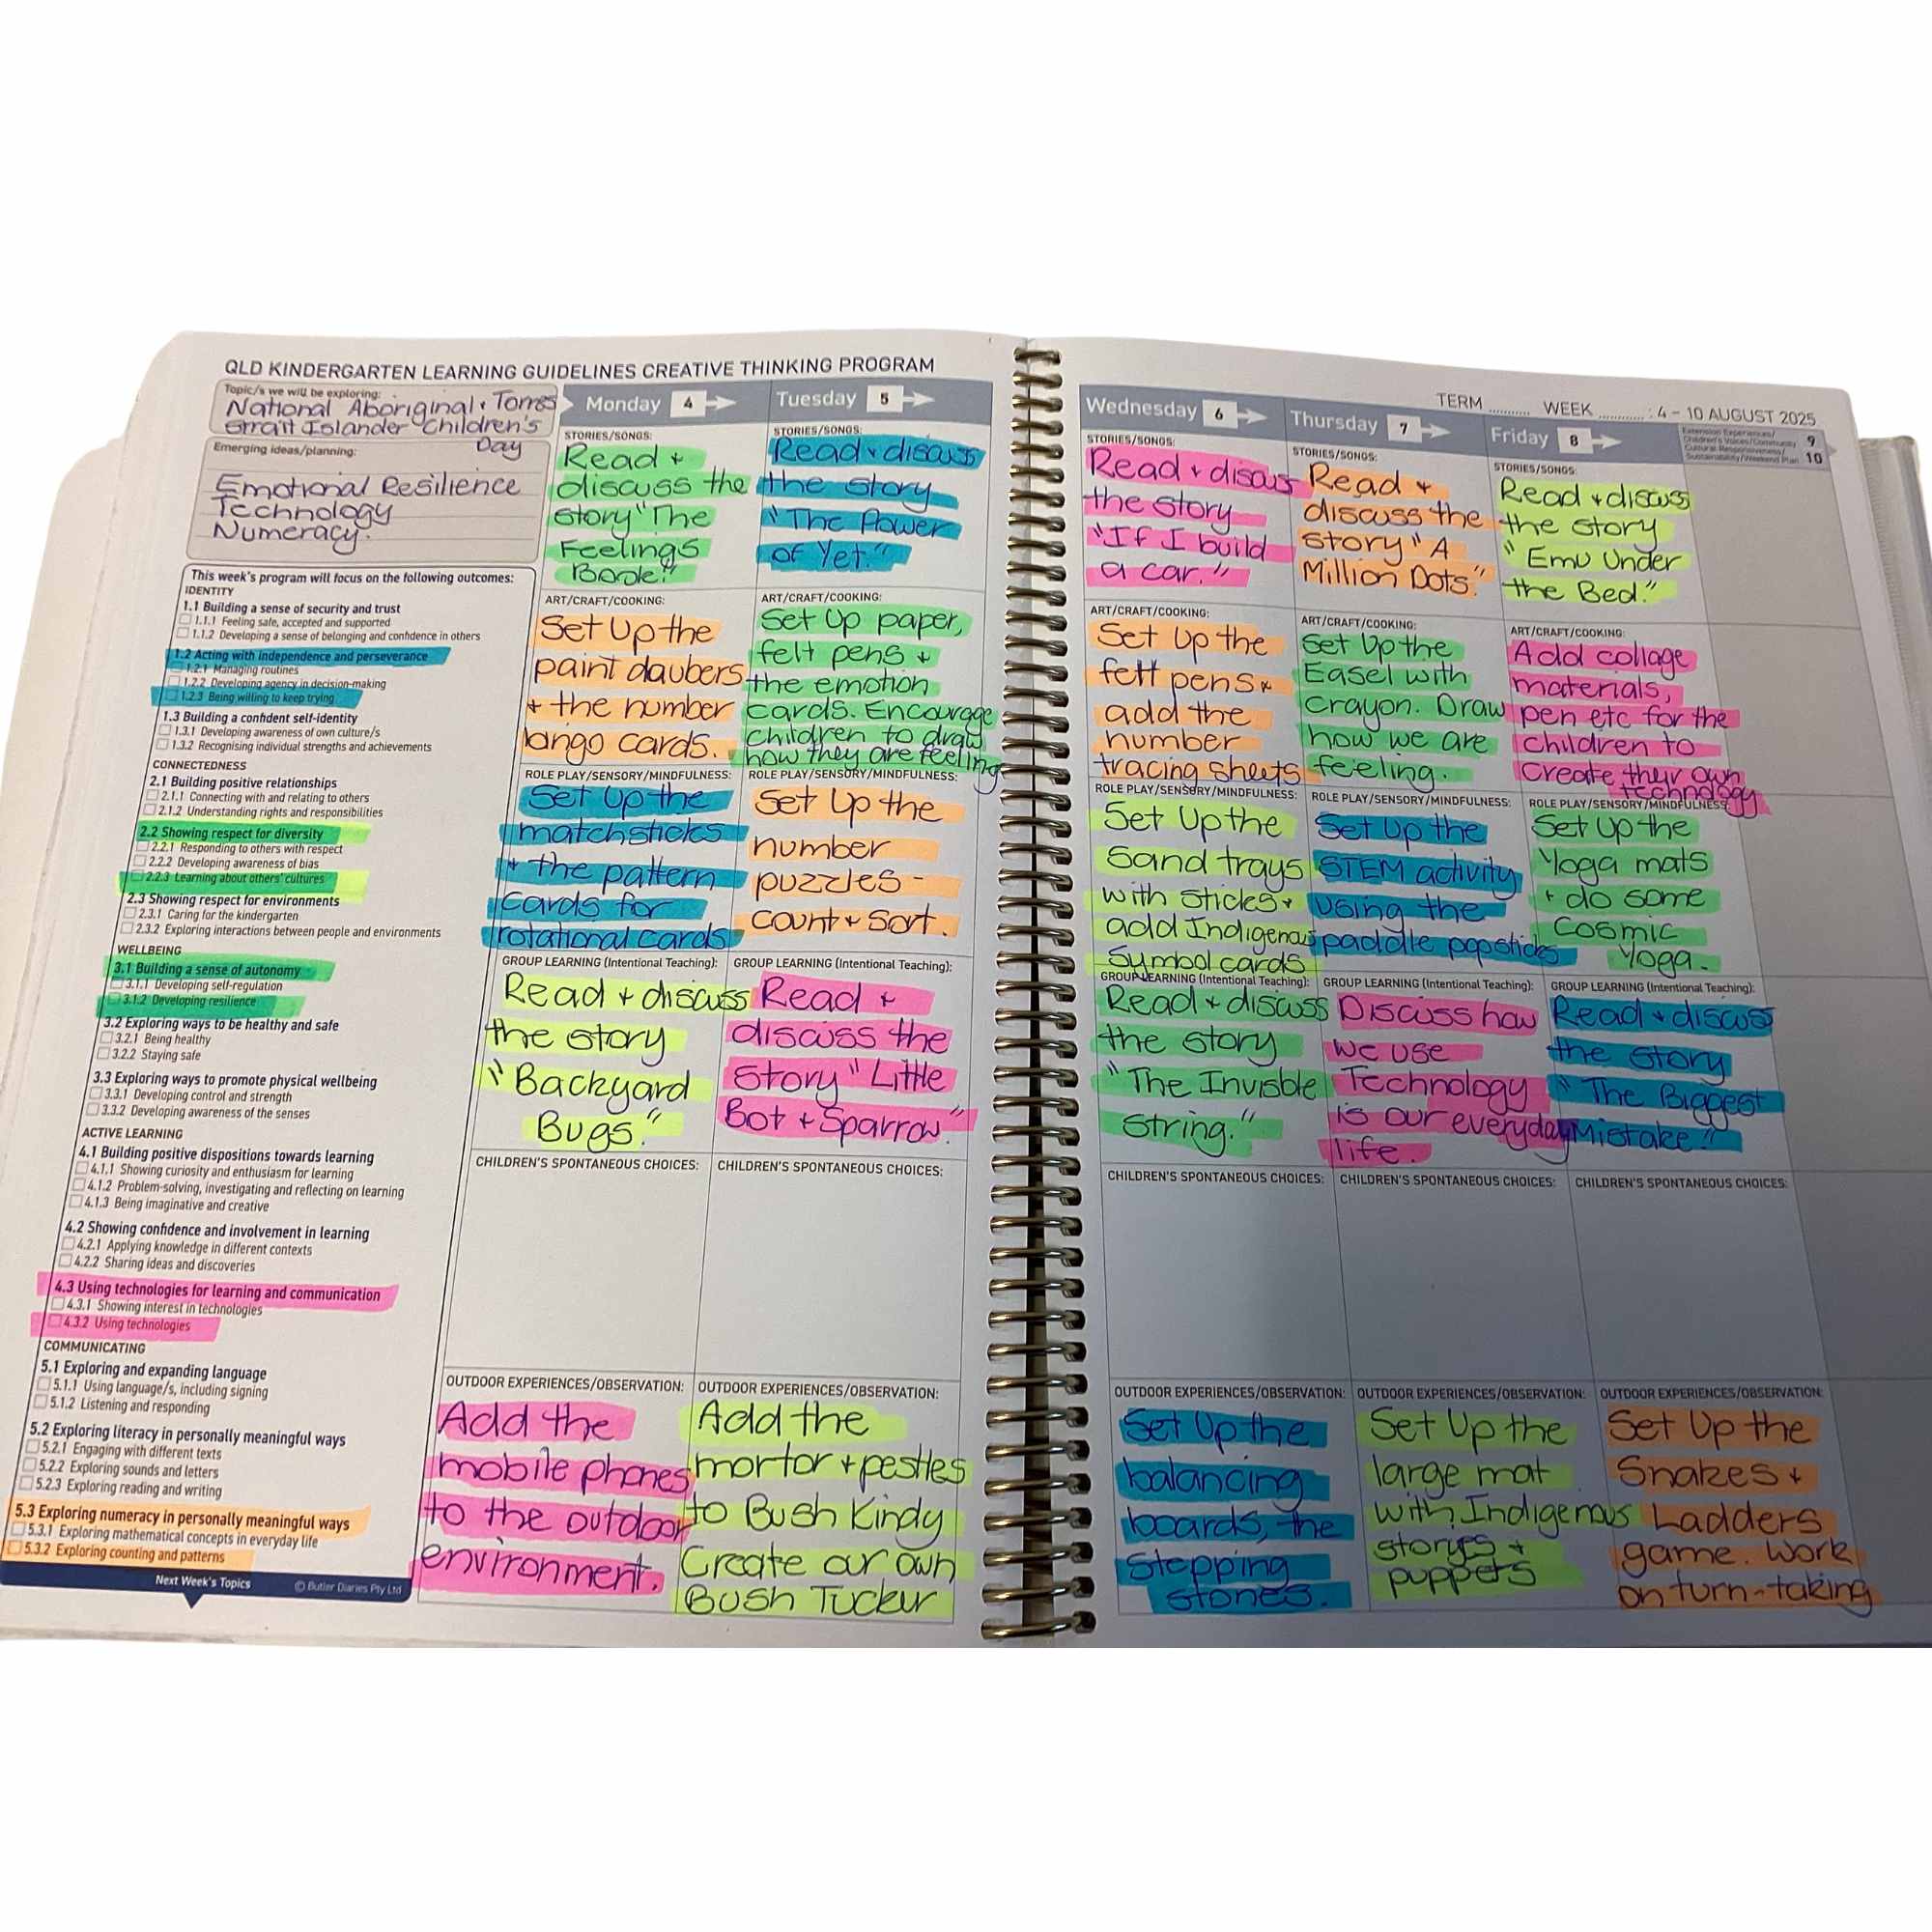 QLD KINDERGARTEN LEARNING GUIDELINES CREATIVE THINKING PROGRAM
Topic/s we will be exploring:
National Aboriginal + Torres
Strait Islander Children's
Day
Emerging ideas/planning:
Emotional Resilience
Technology
Numeracy.
This week's program will focus on the following outcomes:
IDENTITY
1.1 Building a sense of security and trust
1.1.1 Feeling safe, accepted and supported
1.1.2 Developing a sense of belonging and confidence in others
1.2 Acting with independence and perseverance
1.2.1 Managing routines
1.2.2 Developing agency in decision-making
1.2.3 Being willing to keep trying
1.3 Building a confident self-identity
1.3.1 Developing awareness of own culture/s
1.3.2 Recognising individual strengths and achievements
CONNECTEDNESS
2.1 Building positive relationships
2.1.1 Connecting with and relating to others
2.1.2 Understanding rights and responsibilities
2.2 Showing respect for diversity
2.2.1 Responding to others with respect
2.2.2 Developing awareness of bias
2.2.3 Learning about others' cultures
2.3 Showing respect for environments
2.3.1 Caring for the kindergarten
2.3.2 Exploring interactions between people and environments
WELLBEING
3.1 Building a sense of autonomy
3.1.1 Developing self-regulation
3.1.2 Developing resilience
3.2 Exploring ways to be healthy and safe
3.2.1 Being healthy
3.2.2 Staying safe
3.3 Exploring ways to promote physical wellbeing
3.3.1 Developing control and strength
3.3.2 Developing awareness of the senses
ACTIVE LEARNING
4.1 Building positive dispositions towards learning
4.1.1 Showing curiosity and enthusiasm for learning
4.1.2 Problem-solving, investigating and reflecting on learning
4.1.3 Being imaginative and creative
4.2 Showing confidence and involvement in learning
4.2.1 Applying knowledge in different contexts
4.2.2 Sharing ideas and discoveries
4.3 Using technologies for learning and communication
4.3.1 Showing interest in technologies
4.3.2 Using technologies
COMMUNICATING
5.1 Exploring and expanding language
5.1.1 Using language/s, including signing
5.1.2 Listening and responding
5.2 Exploring literacy in personally meaningful ways
5.2.1 Engaging with different texts
5.2.2 Exploring sounds and letters
5.2.3 Exploring reading and writing
5.3 Exploring numeracy in personally meaningful ways
5.3.1 Exploring mathematical concepts in everyday life
5.3.2 Exploring counting and patterns
Next Week's Topics
© Butler Diaries Pty Ltd
Monday 4
STORIES/SONGS:
Read +
discuss the
story "The
Feelings
Book."
ART/CRAFT/COOKING:
Set Up the
paint daubers
+ the number
bingo cards.
ROLE PLAY/SENSORY/MINDFULNESS:
Set Up the
matchsticks
+ the pattern
cards for
rotational cards
GROUP LEARNING (Intentional Teaching):
Read + discuss
the story
"Backyard
Bugs."
CHILDREN'S SPONTANEOUS CHOICES:
OUTDOOR EXPERIENCES/OBSERVATION:
Add the
mobile phones
to the outdoor
environment.
Tuesday 5
STORIES/SONGS:
Read + discuss
the story
"The Power
of Yet."
ART/CRAFT/COOKING:
Set Up paper,
felt pens +
the emotion
cards. Encourage
children to draw
how they are feeling
ROLE PLAY/SENSORY/MINDFULNESS:
Set Up the
number
puzzles -
count + sort.
GROUP LEARNING (Intentional Teaching):
Read +
discuss the
story "Little
Bot + Sparrow."
CHILDREN'S SPONTANEOUS CHOICES:
OUTDOOR EXPERIENCES/OBSERVATION:
Add the
mortor + pestles
to Bush Kindy
Create our own
Bush Tucker
TERM .......... WEEK ........... : 4 - 10 AUGUST 2025
Wednesday 6
STORIES/SONGS:
Read + discuss
the story
"If I build
a car."
ART/CRAFT/COOKING:
Set Up the
felt pens +
add the
number
tracing sheets
ROLE PLAY/SENSORY/MINDFULNESS:
Set Up the
Sand trays
with sticks +
add Indigenous
Symbol cards
GROUP LEARNING (Intentional Teaching):
Read + discuss
the story
"The Invisble
String."
CHILDREN'S SPONTANEOUS CHOICES:
OUTDOOR EXPERIENCES/OBSERVATION:
Set Up the
balancing
boards, the
stepping
stones.
Thursday 7
STORIES/SONGS:
Read +
discuss the
story "A
Million Dots."
ART/CRAFT/COOKING:
Set Up the
Easel with
crayon. Draw
how we are
feeling.
ROLE PLAY/SENSORY/MINDFULNESS:
Set Up the
STEM activity
using the
paddle pop sticks
GROUP LEARNING (Intentional Teaching):
Discuss how
we use
Technology
is our everyday
life.
CHILDREN'S SPONTANEOUS CHOICES:
OUTDOOR EXPERIENCES/OBSERVATION:
Set Up the
large mat
with Indigenous
storyes +
puppets
Friday 8
STORIES/SONGS:
Read + discuss
the story
"Emu Under
the Bed."
ART/CRAFT/COOKING:
Add collage
materials,
pen etc for the
children to
create their own
technology
ROLE PLAY/SENSORY/MINDFULNESS:
Set Up the
Yoga mats
+ do some
Cosmic
Yoga.
GROUP LEARNING (Intentional Teaching):
Read + discuss
the story
"The Biggest
Mistake."
CHILDREN'S SPONTANEOUS CHOICES:
OUTDOOR EXPERIENCES/OBSERVATION:
Set Up the
Snakes +
Ladders
game. Work
on turn-taking
Extension Experiences/
Children's Voices/Community
Cultural Responsiveness/
Sustainability/Weekend Plan
9
10